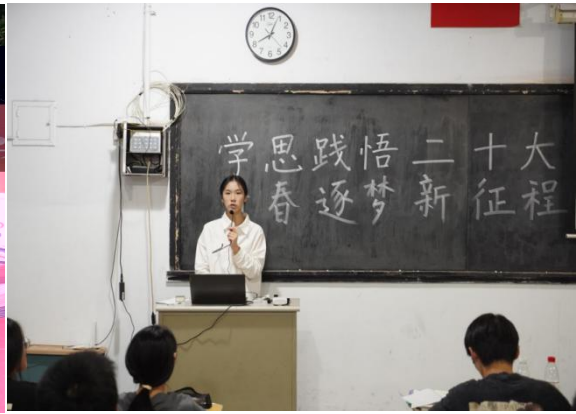 学思践悟二十大
春逐梦新征程